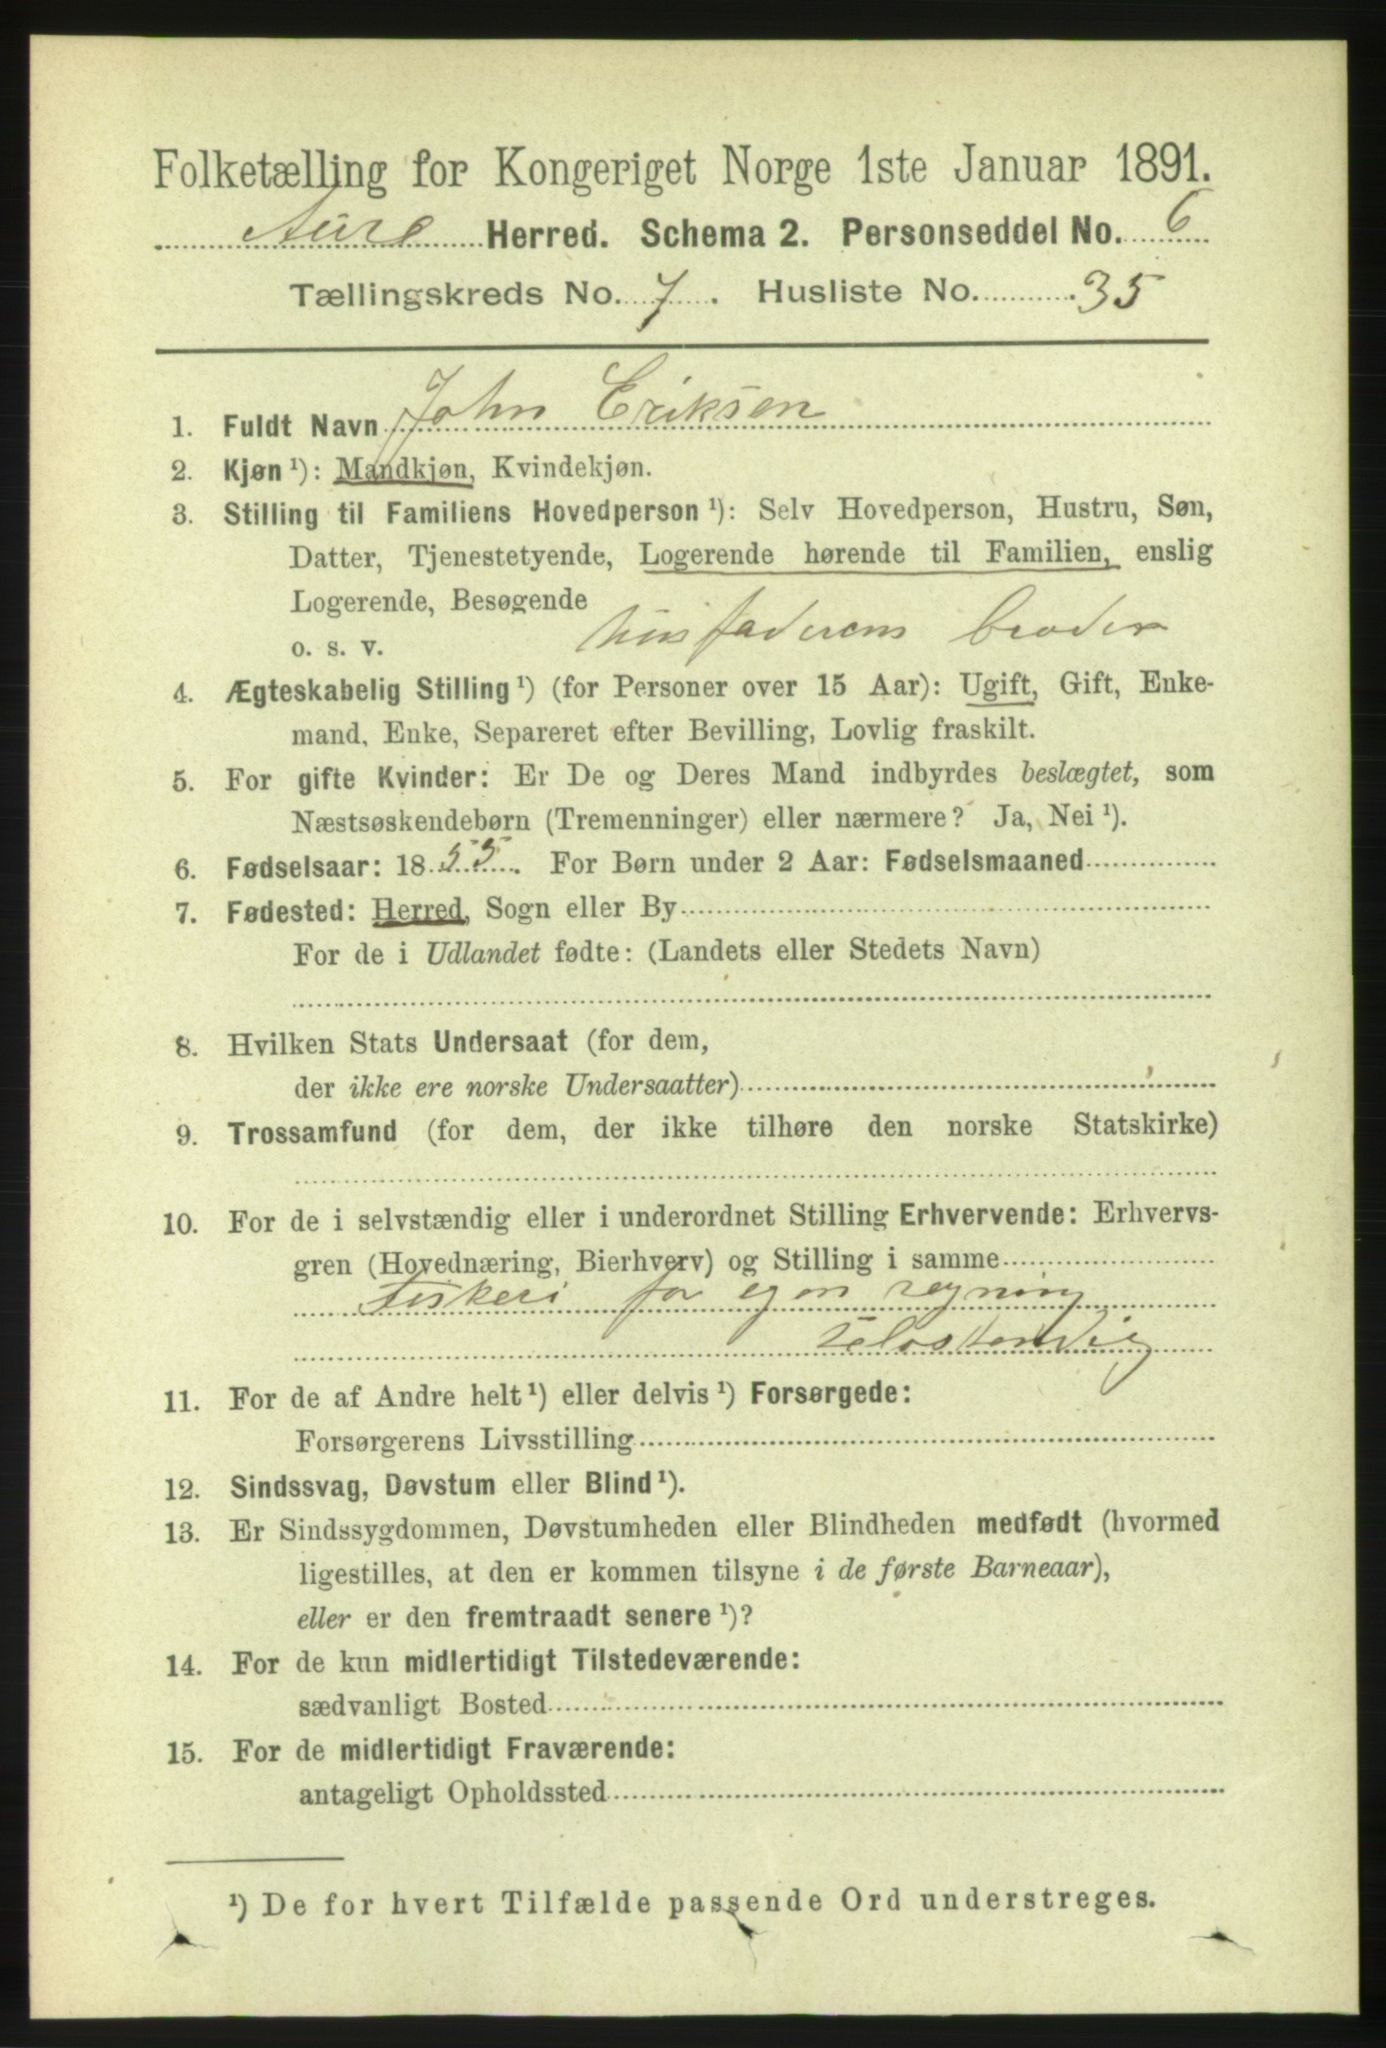 Folketælling for Kongeriget Norge 1ste Januar 1891.
Aure Herred. Schema 2. Personseddel No. 6
Tællingskreds No. 7. Husliste No. 35
1. Fuldt Navn John Eriksen
2. Kjøn ¹): Mandkjøn, Kvindekjøn.
3. Stilling til Familiens Hovedperson ¹): Selv Hovedperson, Hustru, Søn,
Datter, Tjenestetyende, Logerende hørende til Familien, enslig
Logerende, Besøgende
o. s. v. husfaderens broder
4. Ægteskabelig Stilling ¹) (for Personer over 15 Aar): Ugift, Gift, Enke-
mand, Enke, Separeret efter Bevilling, Lovlig fraskilt.
5. For gifte Kvinder: Er De og Deres Mand indbyrdes beslægtet, som
Næstsøskendebørn (Tremenninger) eller nærmere? Ja, Nei ¹).
6. Fødselsaar: 1855. For Børn under 2 Aar: Fødselsmaaned
7. Fødested: Herred, Sogn eller By
For de i Udlandet fødte: (Landets eller Stedets Navn)
8. Hvilken Stats Undersaat (for dem,
der ikke ere norske Undersaatter)
9. Trossamfund (for dem, der ikke tilhøre den norske Statskirke)
10. For de i selvstændig eller i underordnet Stilling Erhvervende: Erhvervs-
gren (Hovednæring, Bierhverv) og Stilling i samme
Fiskeri for egen regning
selvstendig
11. For de af Andre helt ¹) eller delvis ¹) Forsørgede:
Forsørgerens Livsstilling
12. Sindssvag, Døvstum eller Blind ¹).
13. Er Sindssygdommen, Døvstumheden eller Blindheden medfødt (hvormed
ligestilles, at den er kommen tilsyne i de første Barneaar),
eller er den fremtraadt senere ¹)?
14. For de kun midlertidigt Tilstedeværende:
sædvanligt Bosted
15. For de midlertidigt Fraværende:
antageligt Opholdssted
¹) De for hvert Tilfælde passende Ord understreges.